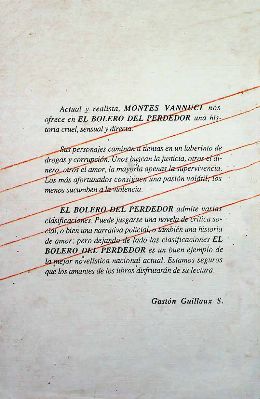 Actual y realista, MONTES VANNUCI nos
ofrece en EL BOLERO DEL PERDEDOR una his-
toria cruel, sensual y directa.
Sus personajes caminan a tientas en un laberinto de
drogas y corrupción. Unos buscan la justicia, otros el di-
nero, otros el amor, la mayoría apenas la supervivencia.
Los más afortunados consiguen una pasión volátil; los
menos sucumben a la violencia.
EL BOLERO DEL PERDEDOR admite varias
clasificaciones. Puede juzgarse una novela de crítica so-
cial, o bien una narrativa policial, o también una historia
de amor; pero dejando de lado las clasificaciones EL
BOLERO DEL PERDEDOR es un buen ejemplo de
la mejor novelística nacional actual. Estamos seguros
que los amantes de los libros disfrutarán de su lectura.
Gastón Guillaux S.